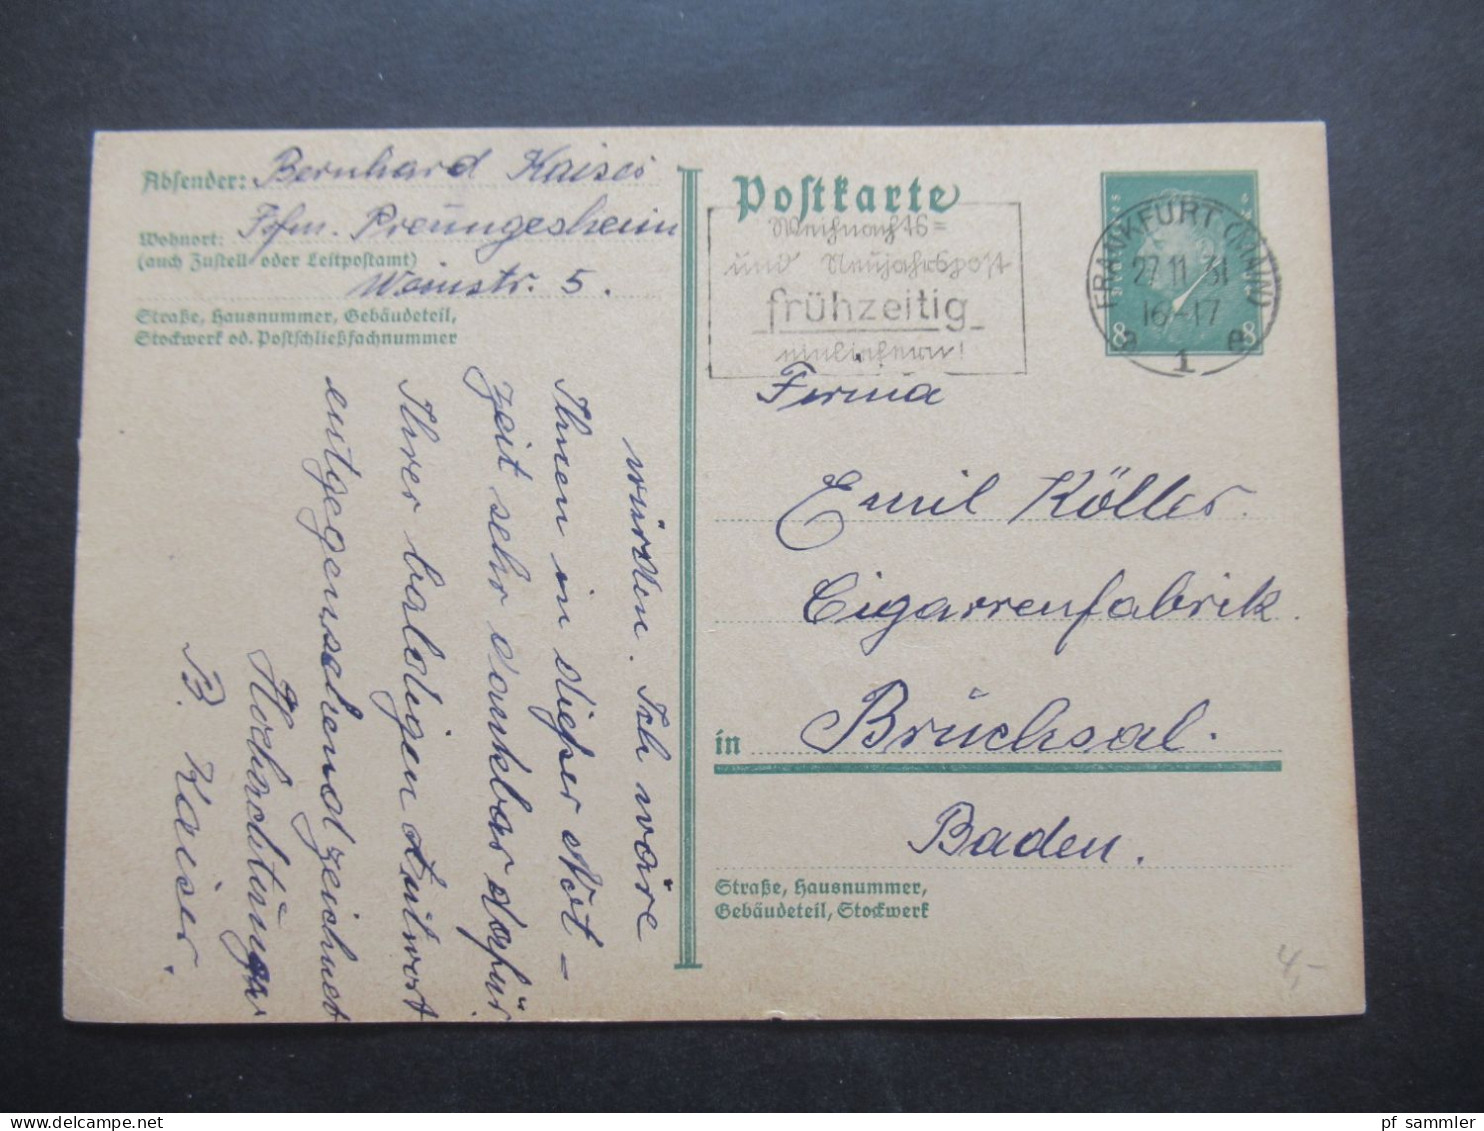 Absender: Bernhard Kaiser
Ffm. Preungesheim
Wohnort:
(auch Zustell- oder Leitpostamt)
Weinstr. 5.
Straße, Hausnummer, Gebäudeteil,
Stockwerk od. Postschließfachnummer
würden. Ich wäre
Ihnen in dieser Not-
zeit sehr dankbar dafür.
Ihrer baldigen Antwort
entgegensehend zeichnet
Hochachtungs
B. Kaiser.
Postkarte
Weihnachts=
und Neujahrspost
frühzeitig
einliefern!
FRANKFURT (MAIN)
27.11.31
16-17
1 e
8 8
Firma
Emil Köller.
Cigarrenfabrik.
in Brüchsal.
Baden.
Straße, Hausnummer,
Gebäudeteil, Stockwerk
4,-
pf_sammler